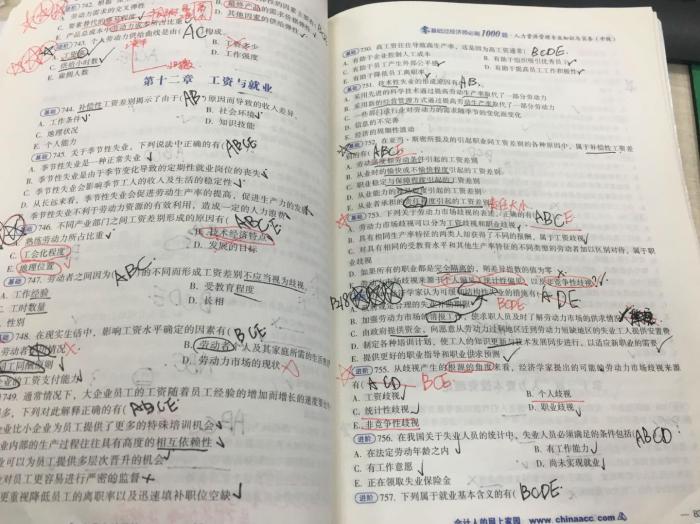 第十二章 工资与就业
744. 补偿性工资差别揭示了由于( AB )原因而导致的收入差异。
A. 工作条件
B. 社会环境
C. 地理状况
D. 知识技能
E. 个人能力
745. 关于季节性失业，下列说法中正确的有( ABCE
A. 季节性失业是一种正常失业
B. 季节性失业是由于季节变化导致的定期性就业岗位的丧失
C. 季节性失业会影响季节工人的收入及生活的稳定性
D. 从长远来看，季节性失业会促进劳动生产率的提高，促进生产力的发展
季节性失业不利于劳动力资源的有效利用，造成一定的人力浪费
746. 不同产业部门之间工资差别形成的原因有( ABCE
熟练劳动所占比重
B. 技术经济特点
C. 工会化程度
D. 发展的目标
E. 地理位置
747. 劳动者之间因为( ABC )的不同而形成工资差别不应当视为歧视
A. 工作经验
B. 受教育程度
C. 工时数量
D. 长相
性别
748. 在现实生活中，影响工资水平确定的因素有( BCE
B. 劳动者个人及其家庭所需的生活费
同工同酬原则
D. 劳动力市场的现状
业的工资支付能力
749. 通常情况下，大企业员工的工资随着员工经验的增加而增长的速度
多，下列对此解释正确的有( ABCE
业比小企业为员工提供了更多的特殊培训机会
业内部的生产过程往往具有高度的相互依赖性
业可以为员工提供多层次晋升的机会
业对员工更容易进行严密的监督
更重视降低员工的离职率以及迅速填补职位空缺
零基础过经济师必刷1000题·人力资源管理专业知识与实务(中级)
750. 高工资往往导致高生产率，这是因为高工资通常( BCDE.
A. 有助于企业控制人工成本
B. 有助于组织吸引优秀员工
C. 有助于员工产生外部公平感
D. 有助于提高员工工作积极性
E. 有助于降低员工离职率
751. 技术性失业的形成原因有( AB.
A. 采用先进的科学技术通过提高劳动生产率取代了一部分劳动力
B. 采用新的经营管理方式通过提高劳动生产率取代了一部分劳动力
C. 一些部门或行业对劳动力的需求随季节的变化而变化
D. 信息的不完善
E. 经济的周期性波动
752. 在亚当·斯密所提及的引起职业间工资差别的各种原因中，属于补偿性工资差别的有( ABCE
A. 劳动强度和劳动条件引起的工资差别
B. 从业时的愉快或不愉快程度引起的工资差别
C. 职业稳定与保障程度引起的工资差别
D. 从业能力的难易程度引起的工资差别
E. 从业者承担的责任程度引起的工资差别
责任大小
753. 下列关于劳动力市场歧视的表述，正确的有( ABCE
A. 劳动力市场歧视可以分为工资歧视和职业歧视
B. 具有相同生产率特征的两类人却获得了不同的报酬，属于工资歧视
C. 对具有相同的受教育水平和其他生产率特征的不同类型的劳动者加以区别对待，属于职业歧视
D. 如果所有的职业都是完全隔离的，则差异指数的值为零
E. 劳动力市场歧视来源于个人偏见、统计性偏见以及非竞争性歧视
BCDE
ADE
B. 加强劳动力市场的情报工作，使求职人员及时了解劳动力市场的供求情况
C. 由政府提供资金，向愿意从劳动力过剩地区迁到劳动力短缺地区的失业工人提供安置费
D. 制定各种培训计划，使工人的知识更新与技术发展同步进行，以适应新职业的需要
E. 提供更好的职业指导和职业供求预测
755. 从歧视产生的根源的角度来看，经济学家提出的可能的劳动力市场歧视来源有( ACD BCE
A. 工资歧视
B. 个人歧视
C. 统计性歧视
D. 职业歧视
E. 非竞争性歧视
756. 在我国关于失业人员的统计中，失业人员必须满足的条件包括( ABCD
A. 在法定劳动年龄之内
B. 有工作能力
C. 有工作意愿
D. 尚未实现就业
E. 正在领取失业保险金
757. 下列属于就业基本含义的有( BCDE.
会计人的网上家园 www.chinaacc.com